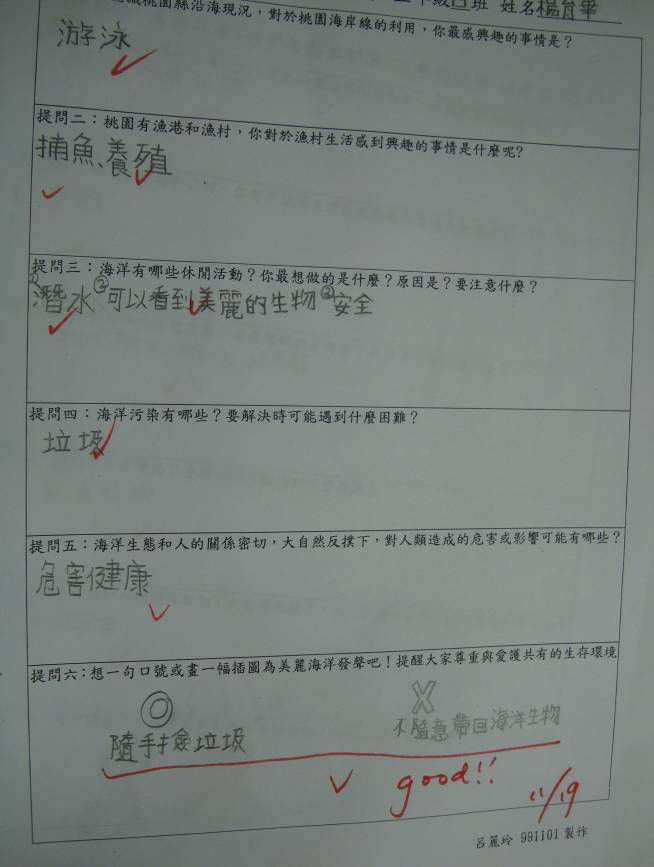 班 姓名楊育畢
桃園縣沿海現況，對於桃園海岸線的利用，你最感興趣的事情是？
游泳
提問二：桃園有漁港和漁村，你對於漁村生活感到興趣的事情是什麼呢？
捕魚、養殖
提問三：海洋有哪些休閒活動？你最想做的是什麼？原因是？要注意什麼？
①潛水②可以看到美麗的生物②安全
提問四：海洋污染有哪些？要解決時可能遇到什麼困難？
垃圾
提問五：海洋生態和人的關係密切，大自然反撲下，對人類造成的危害或影響可能有哪些？
危害健康
提問六：想一句口號或畫一幅插圖為美麗海洋發聲吧！提醒大家尊重與愛護共有的生存環境
◎ X
隨手撿垃圾 不隨意帶回海洋生物
good!! 11/19
呂麗玲 991101 製作